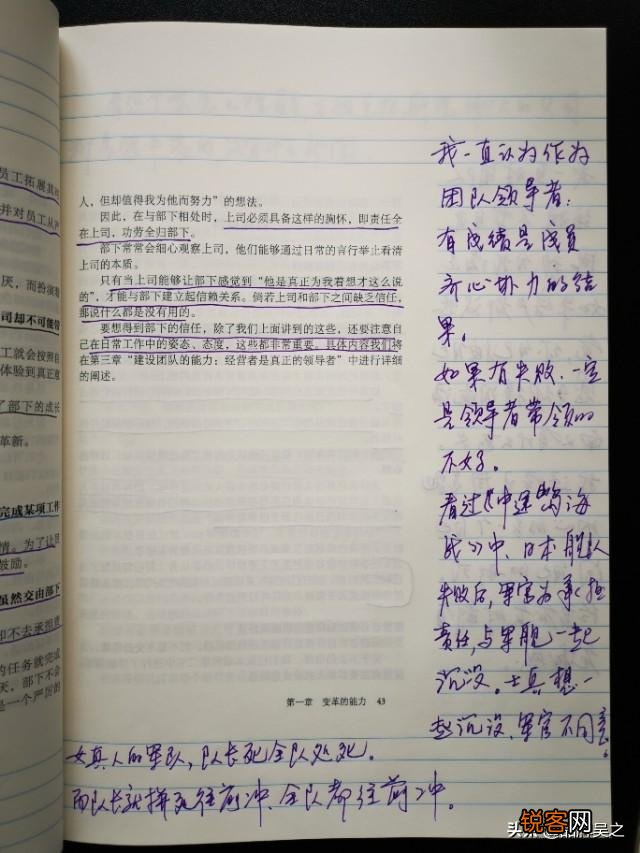 员工拓展其对
并对员工从严
厌，而扮演着
司却不可能带
工就会按照自
体验到真正意
了部下的成长
革新。
完成某项工作
情。为了让员
鼓励。
虽然交由部下
却不去承担责
的任务就完成
天，部下不会
是一个严厉的
人，但却值得我为他而努力”的想法。
因此，在与部下相处时，上司必须具备这样的胸怀，即责任全
在上司，功劳全归部下。
部下常常会细心观察上司，他们能够通过日常的言行举止看清
上司的本质。
只有当上司能够让部下感觉到“他是真正为我着想才这么说
的”，才能与部下建立起信赖关系。倘若上司和部下之间缺乏信任，
那说什么都是没有用的。
要想得到部下的信任，除了我们上面讲到的这些，还要注意自
己在日常工作中的姿态、态度，这些都非常重要。具体内容我们将
在第三章“建设团队的能力：经营者是真正的领导者”中进行详细
的阐述。
第一章 变革的能力 43
我一直认为作为
团队领导者：
有成绩是成员
齐心协力的结
果。
如果有失败．一定
是领导者带领的
不好。
看过《中途岛海
战》中、日本舰队
失败后，军官为承担
责任，与军舰一起
沉没。士兵想一
起沉没、军官不同意。
女真人的军队，队长死全队处死。
而队长就拼死往前冲、全队都往前冲。
头条 @品牌吴之
锐客网